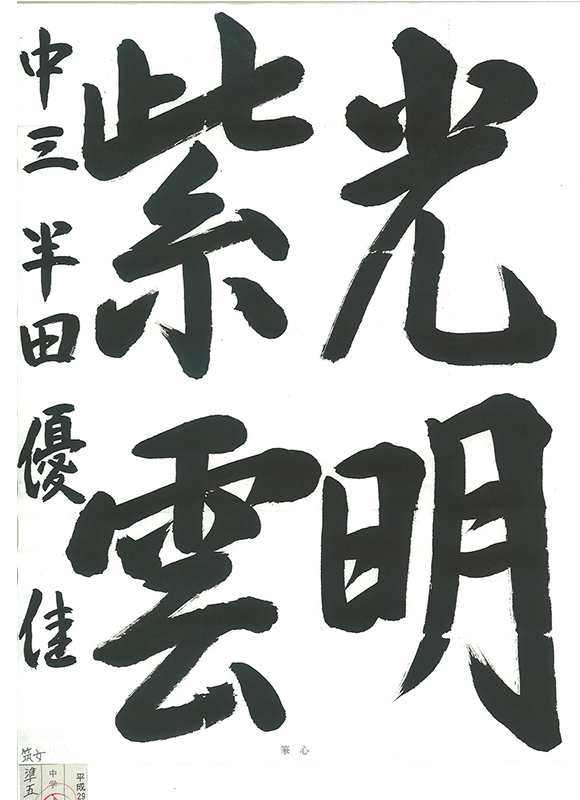 光明
紫雲
中三 半田優佳
心筆
筑女
準五
中学
平成29